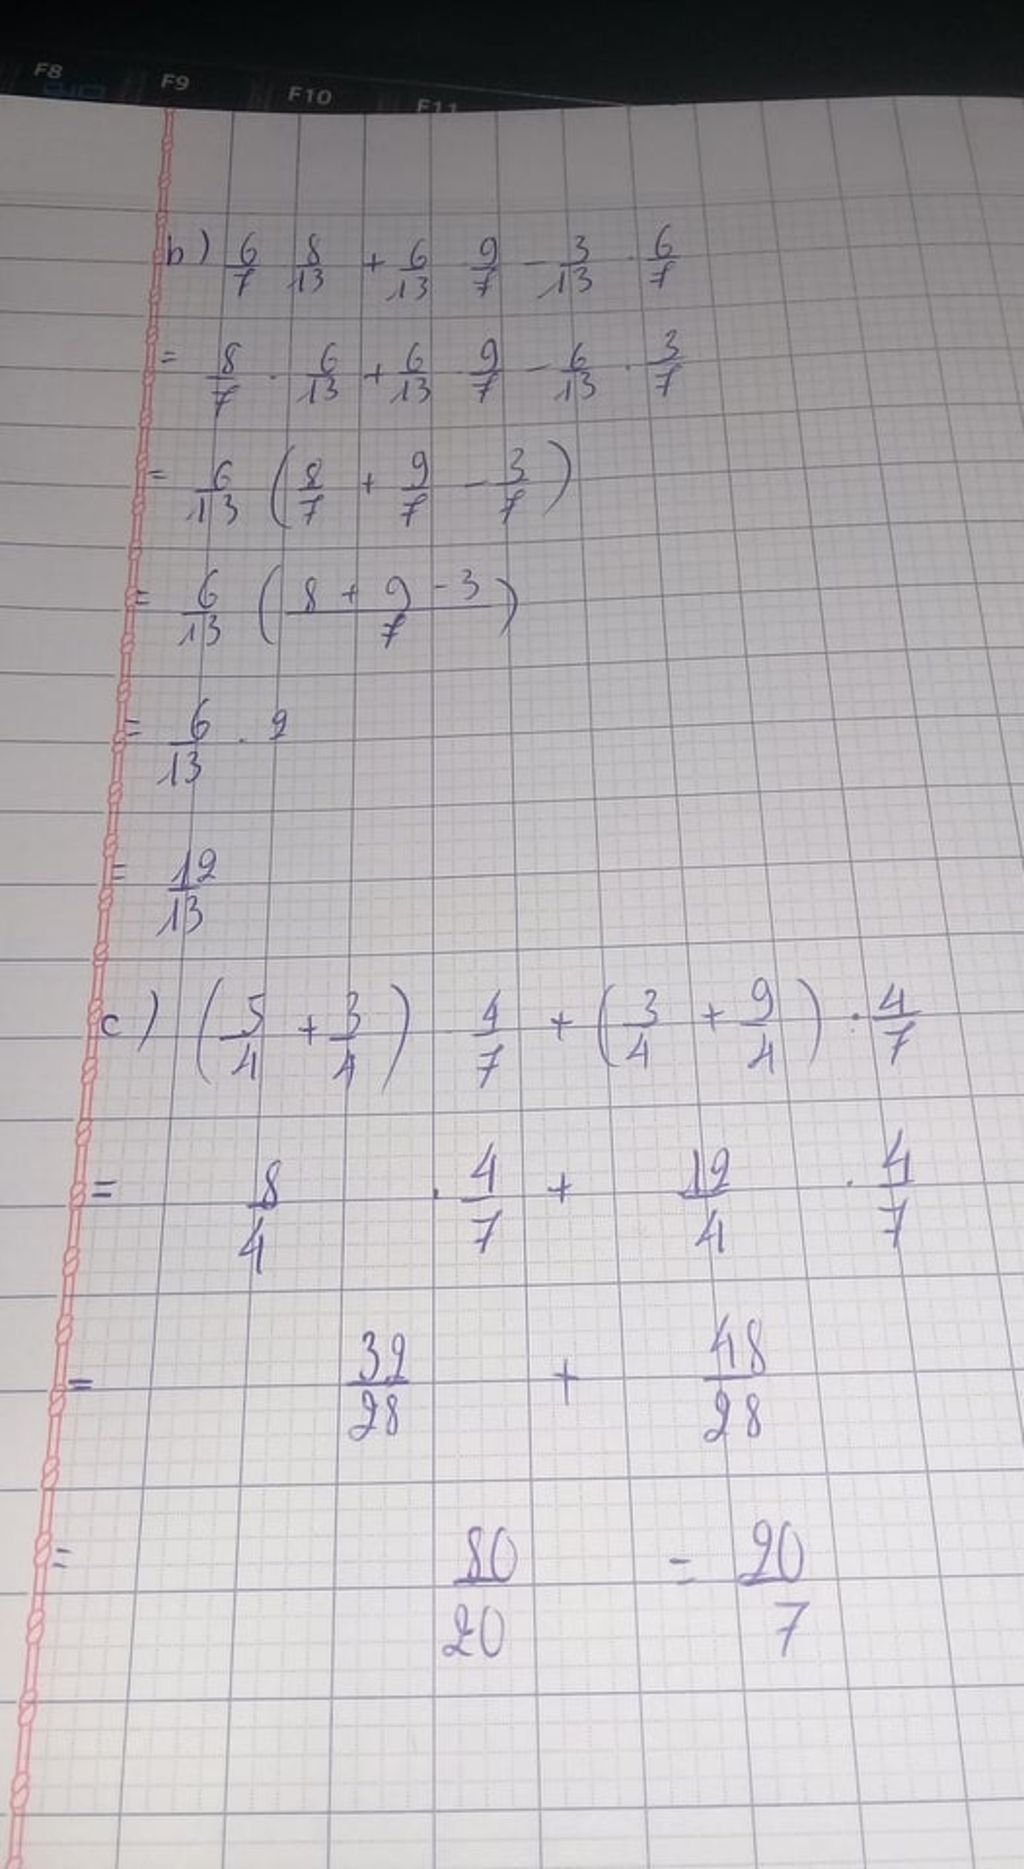 F8 F9 F10 F11
b) 6/7 8/13 + 6/13 9/7 - 3/13 . 6/7
= 8/7 . 6/13 + 6/13 9/7 - 6/13 . 3/7
= 6/13 (8/7 + 9/7 - 3/7)
= 6/13 ((8 + 9 - 3)/7)
= 6/13 . 2
= 12/13
c) (5/4 + 3/4) . 4/7 + (3/4 + 9/4) . 4/7
= 8/4 . 4/7 + 12/4 . 4/7
= 32/28 + 48/28
= 80/20 = 20/7